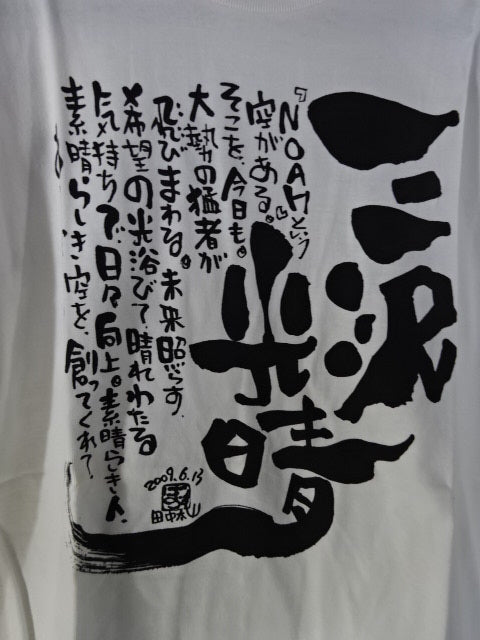 三沢
光晴
『NOAHという
空がある。』
そこを、今日も。
大勢の猛者が
飛びまわる。未来照らす、
希望の光浴びて、晴れわたる
気持ちで、日々向上。素晴らしき人、
素晴らしき空を、創ってくれて、
2009.6.13